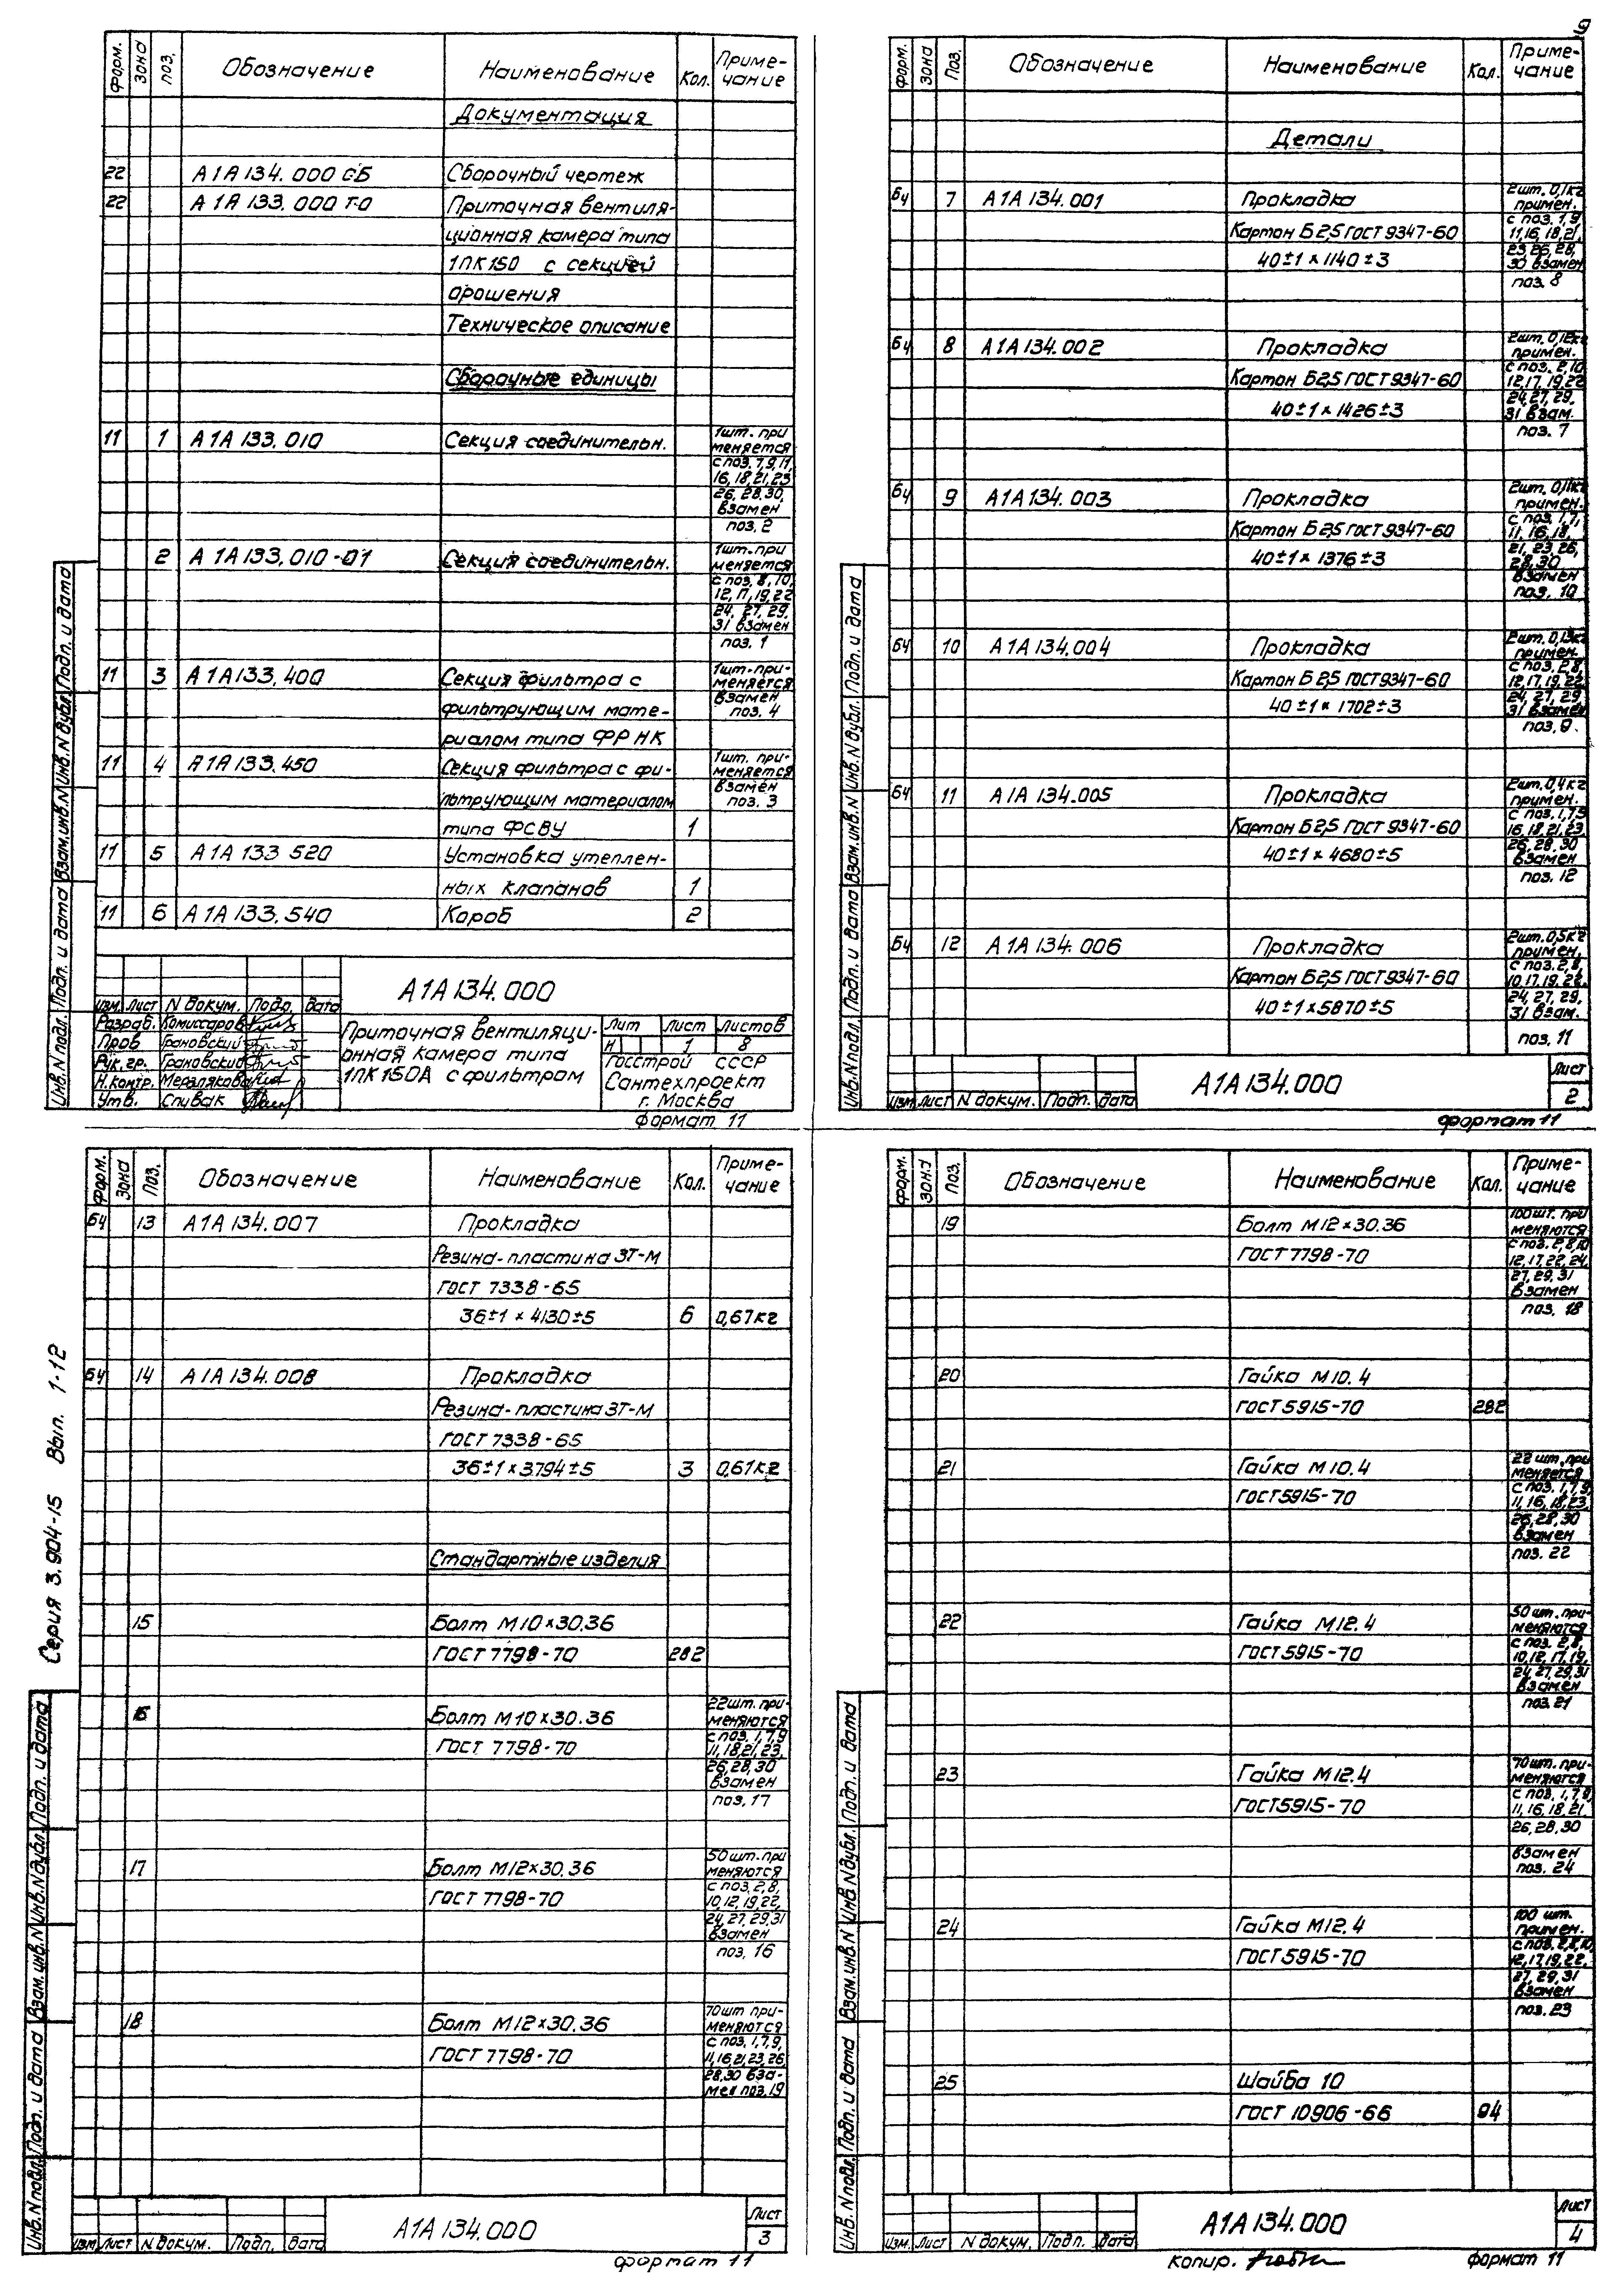 9
Форм.
Зона
Поз.
Обозначение
Наименование
Кол.
Приме-
чание
Документация
22 А1А134.000 СБ Сборочный чертеж
22 А1А133.000 ТО Приточная вентиля-
ционная камера типа
1ПК150 с секцией
орошения
Техническое описание
Сборочные единицы
11 1 А1А133.010 Секция соединительн.
1шт. при
меняется
с поз. 7,9,11,
16,18,21,23
26,28,30,
взамен
поз. 2
2 А1А133.010-01 Секция соединительн.
1шт. при
меняется
с поз. 8,10,
12,17,19,22
24,27,29,
31 взамен
поз. 1
11 3 А1А133.400 Секция фильтра с
фильтрующим мате-
риалом типа ФРНК
1шт. при-
меняется
взамен
поз. 4
11 4 А1А133.450 Секция фильтра с фи-
льтрующим материалом
типа ФСВУ 1
1шт. при-
меняется
взамен
поз. 3
11 5 А1А133 520 Установка утеплен-
ных клапанов 1
11 6 А1А133.540 Короб 2
А1А134.000
Изм. Лист N докум. Подп. Дата
Разраб. Комиссаров
Пров Грановский
Рук. гр. Грановский
Н.контр. Мерзлякова
Утв. Спивак
Приточная вентиляци-
онная камера типа
1ПК150А с фильтром
Лит Лист Листов
И 1 8
Госстрой СССР
Сантехпроект
г. Москва
Формат 11
Инв.N подл. Подп. и дата Взам.инв.N Инв.N дубл. Подп. и дата
Форм.
Зона
Поз.
Обозначение
Наименование
Кол.
Приме-
чание
Детали
БЧ 7 А1А134.001 Прокладка
Картон Б 2,5 ГОСТ 9347-60
40±1 × 1140±3
2шт. 0,1кг
примен.
с поз. 1,9
11,16,18,21,
23,26,28,
30 взамен
поз. 8
БЧ 8 А1А134.002 Прокладка
Картон Б 2,5 ГОСТ 9347-60
40±1 × 1426±3
2шт. 0,12кг
примен.
с поз. 2,10
12,17,19,22
24,27,29,
31 взам.
поз. 7
БЧ 9 А1А134.003 Прокладка
Картон Б 2,5 ГОСТ 9347-60
40±1 × 1376±3
2шт. 0,11кг
примен.
с поз. 1,7,
11,16,18,
21,23,26,
28,30
взамен
поз. 10
БЧ 10 А1А134.004 Прокладка
Картон Б 2,5 ГОСТ 9347-60
40±1 × 1702±3
2шт. 0,13кг
примен.
с поз. 2,8,
12,17,19,22,
24,27,29
31 взамен
поз. 9.
БЧ 11 А1А134.005 Прокладка
Картон Б 2,5 ГОСТ 9347-60
40±1 × 4680±5
2шт. 0,4кг
примен.
с поз. 1,7,9
16,18,21,23,
26,28,30
взамен
поз. 12
БЧ 12 А1А134.006 Прокладка
Картон Б 2,5 ГОСТ 9347-60
40±1 × 5870±5
2шт. 0,5кг
примен.
с поз. 2,8,
10,17,19,22,
24,27,29,
31 взам.
поз. 11
Изм Лист N докум. Подп. Дата
А1А134.000
Лист
2
Формат 11
Инв.N подл. Подп. и дата Взам.инв.N Инв.N дубл. Подп. и дата
Серия 3.904-15 Вып. 1-12
Форм.
Зона
Поз.
Обозначение
Наименование
Кол.
Приме-
чание
БЧ 13 А1А134.007 Прокладка
Резина-пластина 3Т-М
ГОСТ 7338-65
36±1 × 4130±5 6 0,67кг
БЧ 14 А1А134.008 Прокладка
Резина-пластина 3Т-М
ГОСТ 7338-65
36±1 × 3794±5 3 0,61кг
Стандартные изделия
15 Болт М10×30.36
ГОСТ 7798-70 282
16 Болт М10×30.36
ГОСТ 7798-70
22шт. при-
меняются
с поз. 1,7,9
11,18,21,23,
26,28,30
взамен
поз. 17
17 Болт М12×30.36
ГОСТ 7798-70
50 шт. при
меняются
с поз. 2,8,
10,12,19,22,
24,27,29,31
взамен
поз. 16
18 Болт М12×30.36
ГОСТ 7798-70
70шт при-
меняются
с поз. 1,7,9,
11,16,21,23,26,
28,30 вза-
мен поз. 19
Изм Лист N докум. Подп. Дата
А1А134.000
Лист
3
Формат 11
Инв.N подл. Подп. и дата Взам.инв.N Инв.N дубл. Подп. и дата
Форм.
Зона
Поз.
Обозначение
Наименование
Кол.
Приме-
чание
19 Болт М12×30.36
ГОСТ 7798-70
100шт. при
меняются
с поз. 2,8,10
12,17,22,24,
27,29,31
взамен
поз. 18
20 Гайка М10.4
ГОСТ 5915-70 282
21 Гайка М10.4
ГОСТ 5915-70
22 шт. при
меняется
с поз. 1,7,9
11,16,18,23,
26,28,30
взамен
поз. 22
22 Гайка М12.4
ГОСТ 5915-70
50 шт. при-
меняются
с поз. 2,8,
10,12,17,19,
24,27,29,31
взамен
поз 21
23 Гайка М12.4
ГОСТ 5915-70
70шт. при-
меняются
с поз. 1,7,9
11,16,18,21,
26,28,30
взамен
поз. 24
24 Гайка М12.4
ГОСТ 5915-70
100 шт.
примен.
с поз. 2,8,10,
12,17,19,22,
27,29,31
взамен
поз. 23
25 Шайба 10
ГОСТ 10906-66 94
Изм. Лист N докум. Подп. Дата
А1А134.000
Лист
4
Копир.
Формат 11
Инв.N подл. Подп. и дата Взам.инв.N Инв.N дубл. Подп. и дата